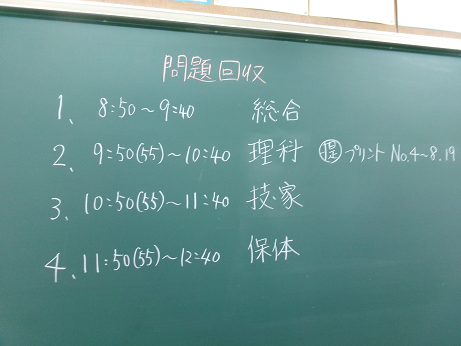 問題回収
1、 8:50~9:40 総合
2、 9:50(55)~10:40 理科 提 プリント No.4~8.19
3、 10:50(55)~11:40 技・家
4、 11:50(55)~12:40 保体